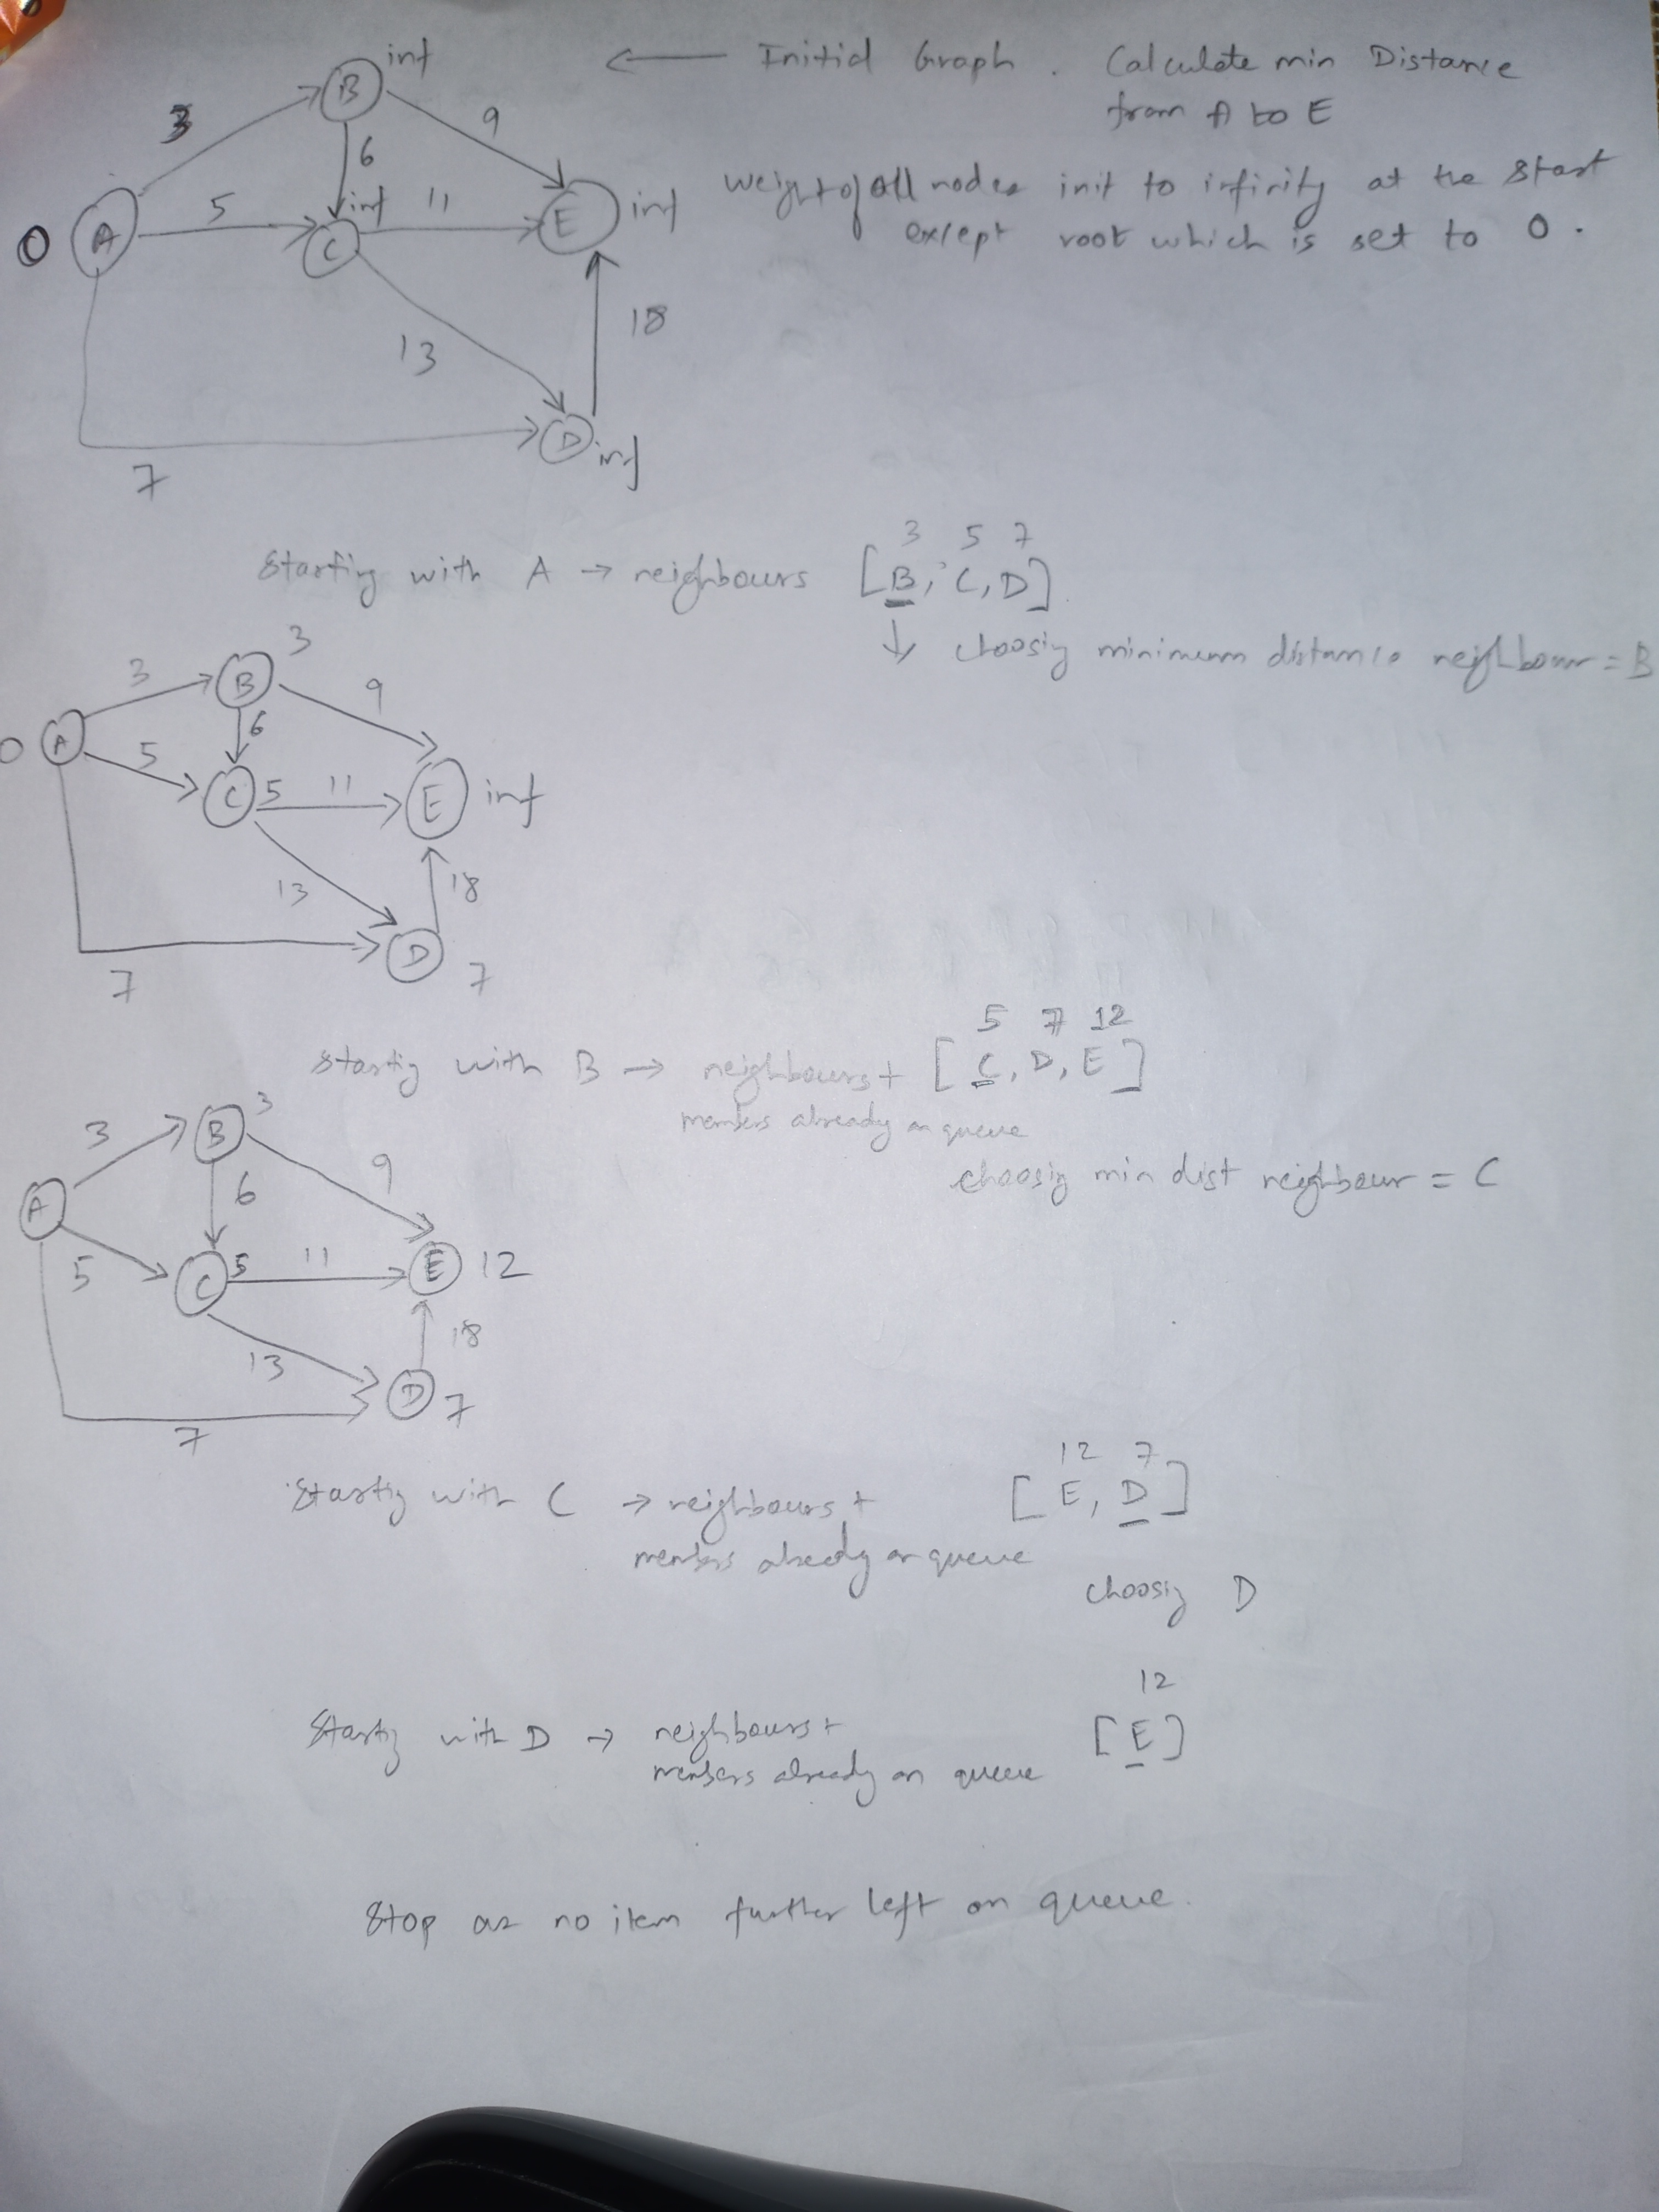 inf
B
← Initial Graph. Calculate min Distance
from A to E
3
9
6
weight of all nodes init to infinity at the start
except root which is set to 0.
0 A 5 inf C 11 E inf
13
18
D inf
7
3 5 7
Starting with A → neighbours [B, C, D]
↓ choosing minimum distance neighbour = B
3
3 B 9
0 A 6
5 C 5 11 E inf
13 18
D 7
7
5 7 12
Starting with B → neighbours + [C, D, E]
members already on queue
choosing min dist neighbour = C
3
3 B 9
A 6
5 C 5 11 E 12
13 18
D 7
7
12 7
Starting with C → neighbours + [E, D]
members already on queue
choosing D
12
Starting with D → neighbours + [E]
members already on queue
Stop as no item further left on queue.